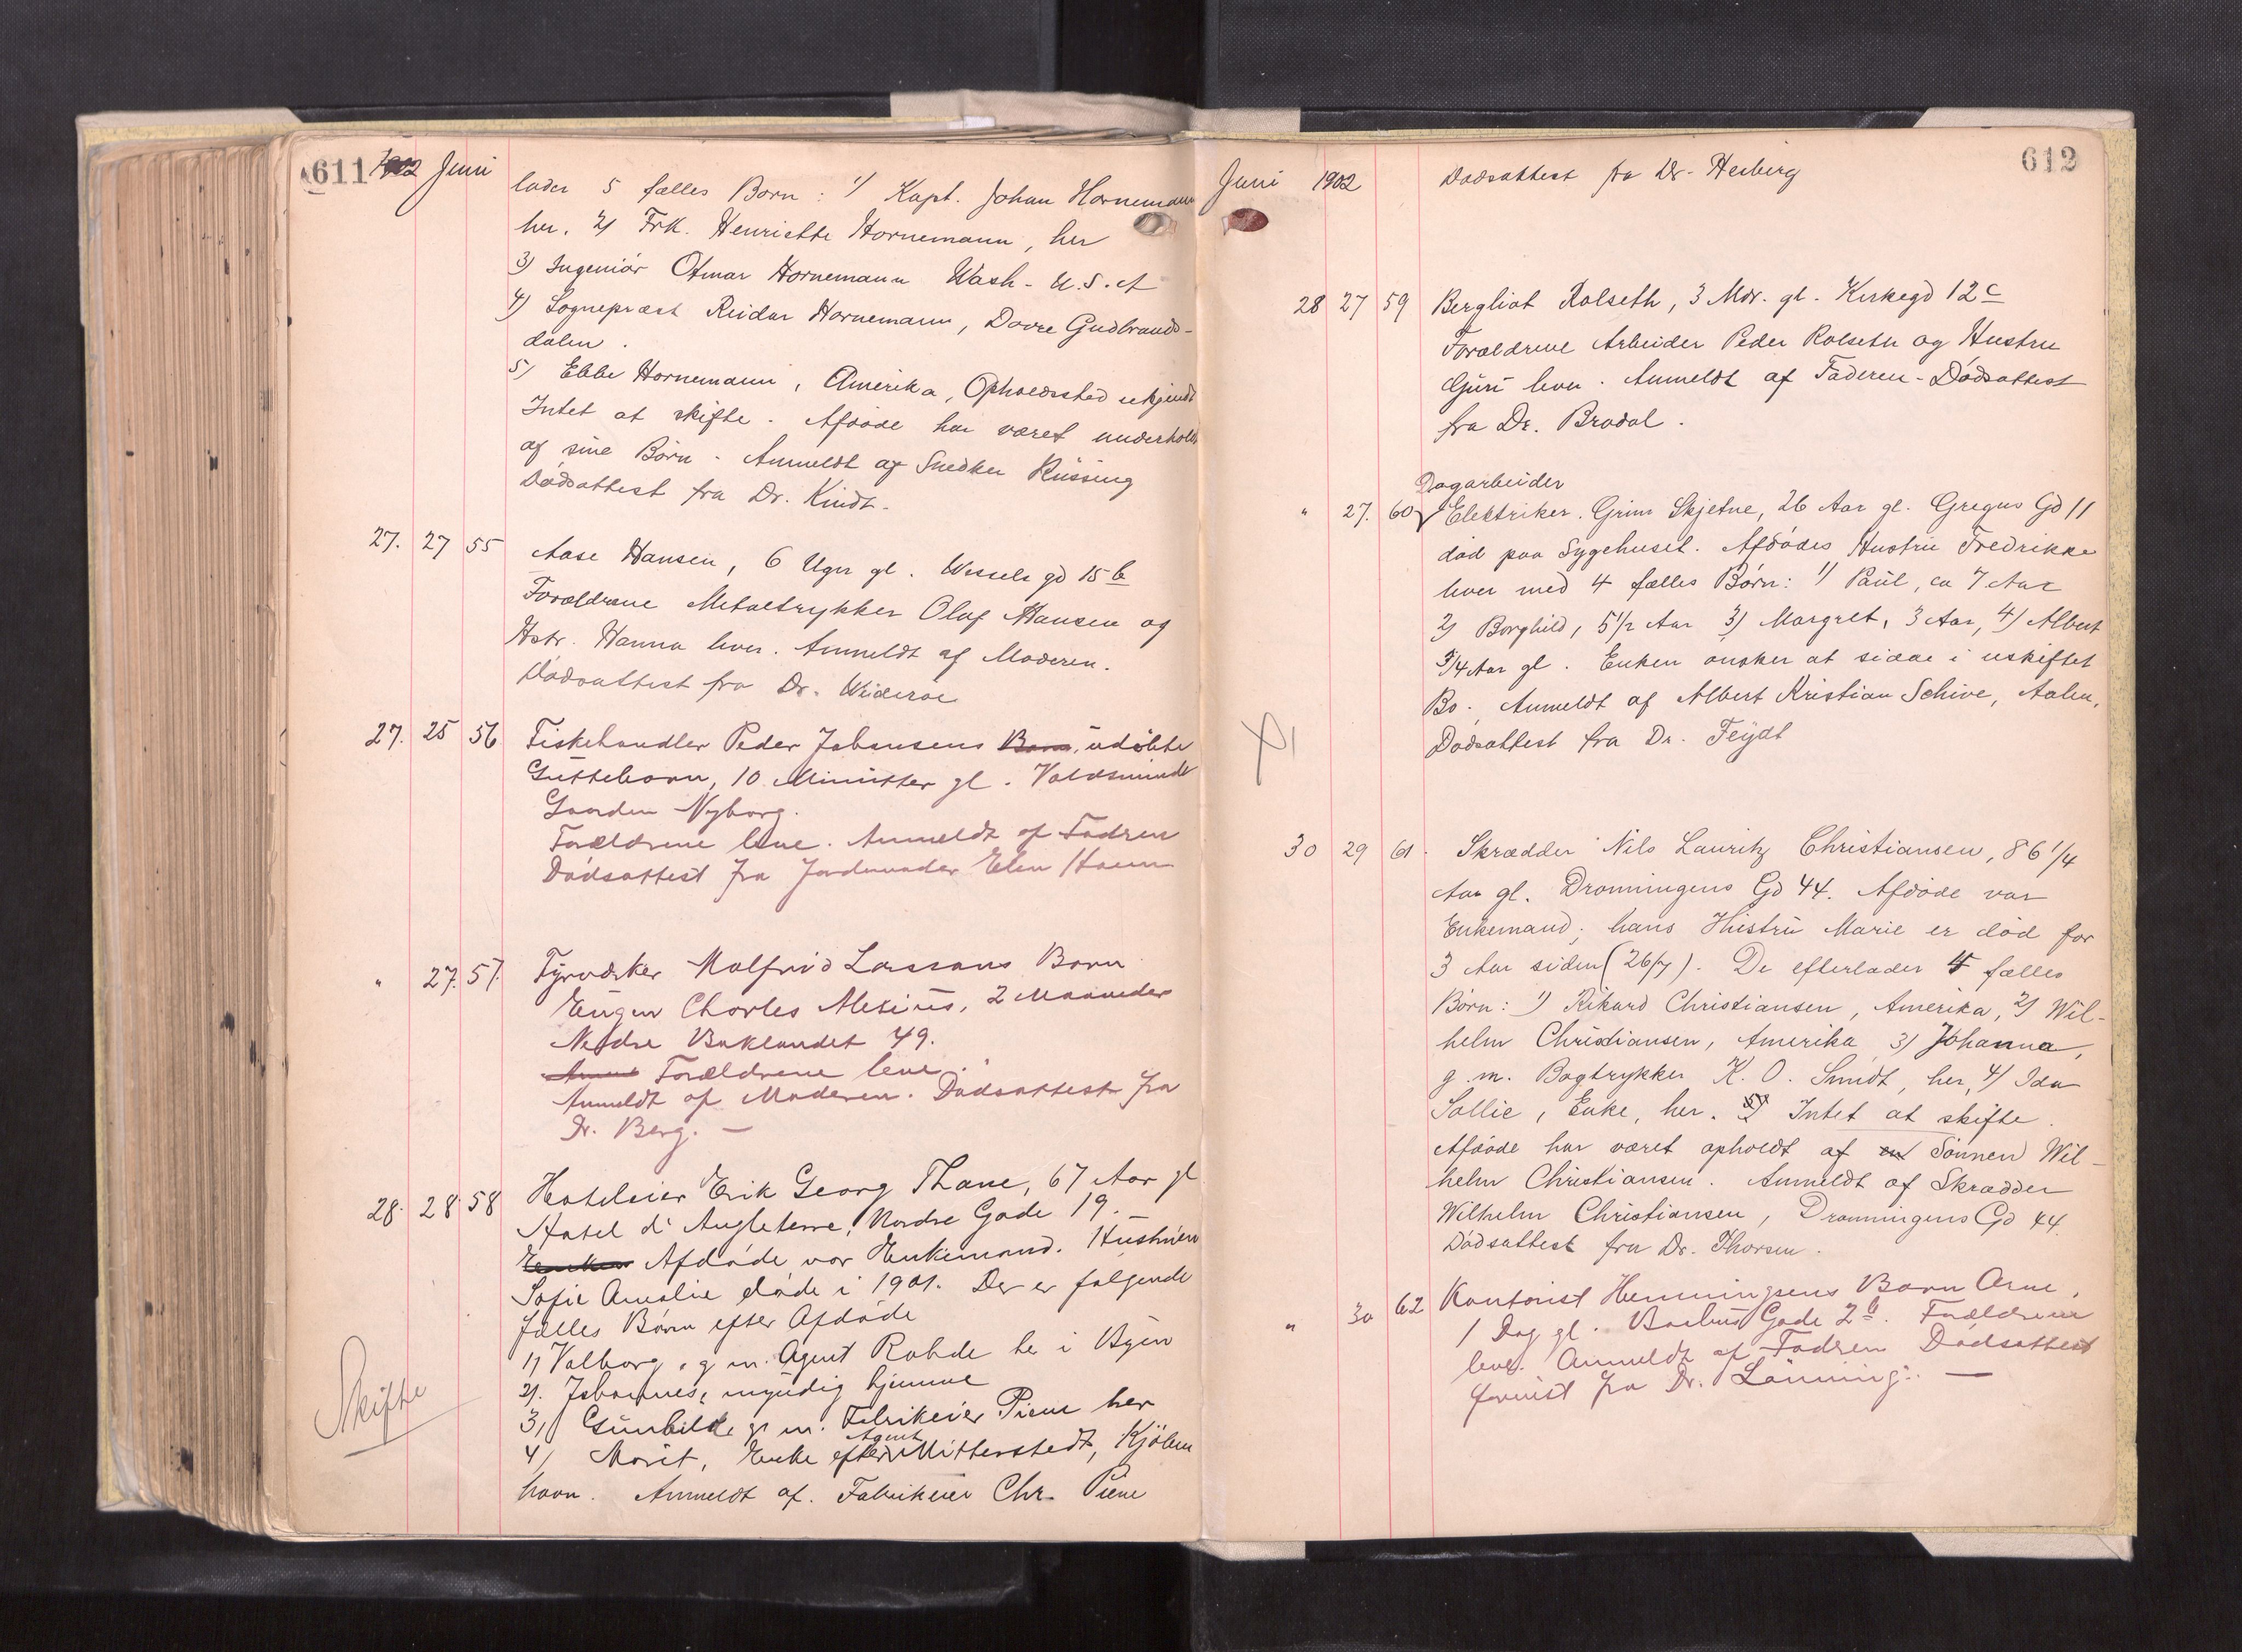 611 1902 Juni
lader 5 fælles Børn: 1) Kapt. Johan Hornemann
her. 2) Frk. Henriette Hornemann, her
3) Ingeniør Otmar Hornemann Wash. U.S.A
4) Sognepræst Reidar Hornemann, Dovre Gudbrands-
dalen.
5) Ebbe Hornemann, Amerika, Opholdssted ukjendt
Intet at skifte. Afdøde har været underholdt
af sine Børn. Anmeldt af Snedker Rüssing
Dødsattest fra Dr. Kindt.
27. 27 55 Aase Hansen, 6 Uger gl. Wessels gd 15 b
Forældrene Metaltrykker Olaf Hansen og
Hstr. Hanna lever. Anmeldt af Moderen.
Dødsattest fra Dr. Widerøe
27. 25 56 Fiskehandler Peder Johansens Barn, udøbte
Guttebarn, 10 Minutter gl. Voldsminde
Gaarden Nyborg.
Forældrene leve. Anmeldt af Fadren
Dødsattest fra Jordemoder Elen Haun
" 27. 57. Fyrvøker Malfrid Larsens Barn
Eugen Charles Alexius, 2 Maaneder
Nedre Baklandet 49.
Forældrene leve.
Anmeldt af Moderen. Dødsattest fra
Dr. Berg. —
28. 28 58 Hoteleier Erik Georg Thane, 67 Aar gl
Hotel d'Angleterre, Nordre Gade 19.
Enken Afdøde var Enkemand. Hustruen
Sofie Amalie døde i 1901. Der er følgende
fælles Børn efter Afdøde
1) Valborg, g m. Agent Rohde her i Byen
2). Johannes, myndig hjemme
3) Gunhilde g. m. Fabrikeier Piene her
Agent
4) Marit, Enke efter Mitterstedt, Kjøben
havn. Anmeldt af. Fabrikeier Chr. Piene
Skifte
Juni 1902 612
Dødsattest fra Dr. Herberg
28 27 59 Bergliot Rolseth, 3 Mdr. gl. Kirkegd 12 c
Forældrene Arbeider Peder Rolseth og Hustru
Guri lever. Anmeldt af Faderen - Dødsattest
fra Dr. Brodal.
Dagarbeider
" 27. 60 Elektriker. Grim Skjetne, 26 Aar gl. Gregus Gd 11
død paa Sygehuset. Afdødes Hustru Fredrikke
lever med 4 fælles Børn: 1) Paul, ca 7 Aar
2) Borghild, 5 1/2 Aar 3) Margret, 3 Aar, 4) Albert
3/4 Aar gl. Enken ønsker at sidde i uskiftet
Bo. Anmeldt af Albert Kristian Schive, Aalen.
Dødsattest fra Dr. Feydt
30 29 61 Skrædder Nils Lauritz Christiansen, 86 1/4
Aar gl. Dronningens Gd 44. Afdøde var
Enkemand; hans Hustru Marie er død for
3 Aar siden (26/7). De efterlader 4 fælles
Børn: 1) Rikard Christiansen, Amerika, 2) Wil-
helm Christiansen, Amerika 3) Johanna,
g. m. Bogtrykker K. O. Smidt, her, 4) Ida
Sollie, Enke, her. 5) Intet at skifte.
Afdøde har været opholdt af en Sønnen Wil-
helm Christiansen. Anmeldt af Skrædder
Wilhelm Christiansen, Dronningens Gd 44.
Dødsattest fra Dr. Thorsen.
" 30 62 Kontorist Henningsens Barn Arne,
1 Dag gl. Gade 2 b. Forældrene
leve. Anmeldt af Fadren Dødsattest
forevist fra Dr. Lønning. —